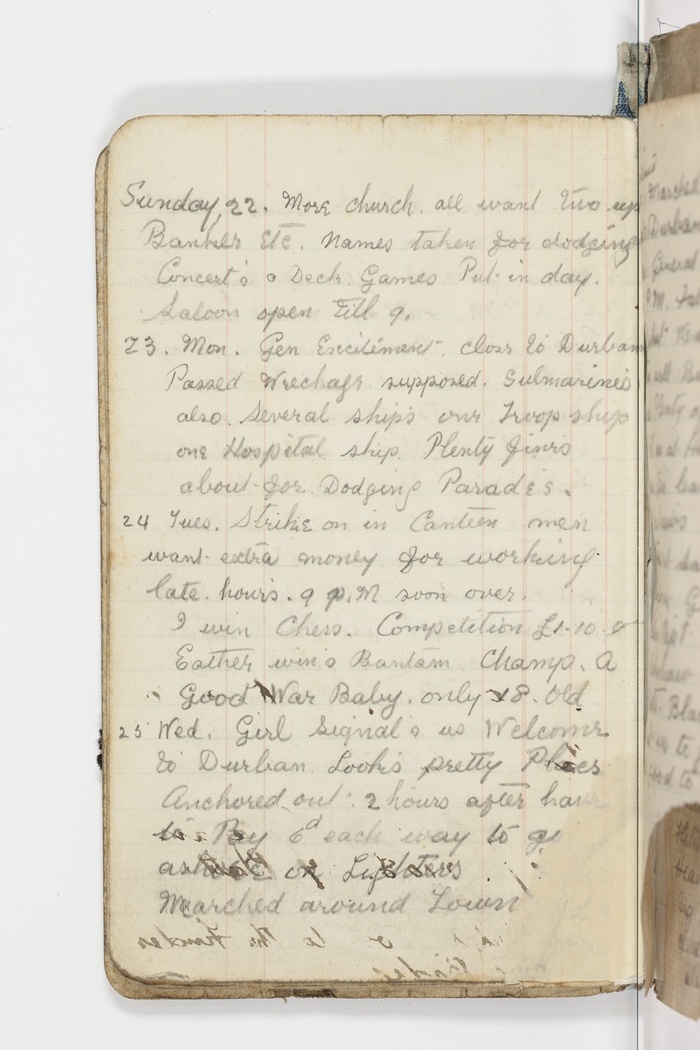 Sunday, 22. More church. all want two up
Banker Etc. Names taken for dodging
Concert's & Deck Games Put in day.
Saloon open till 9.
23. Mon. Gen Excitement. close to Durban
Passed Wreckage supposed. Submarines
also. Several ships one Troop ship
one Hospital ship. Plenty fines
about for Dodging Parades.
24 Tues. Strike on in Canteen men
want extra money for working
late. hours. 9 p.m soon over.
I win Chess. Competition £1-10.0
Eather win's Bantam Champ. A
Good War Baby. only 18. Old
25 Wed. Girl Signal's us Welcome
to Durban. Look's pretty Place
Anchored out. 2 hours after have
to. Pay 6d each way to go
ashore on Lighters.
Marched around Town